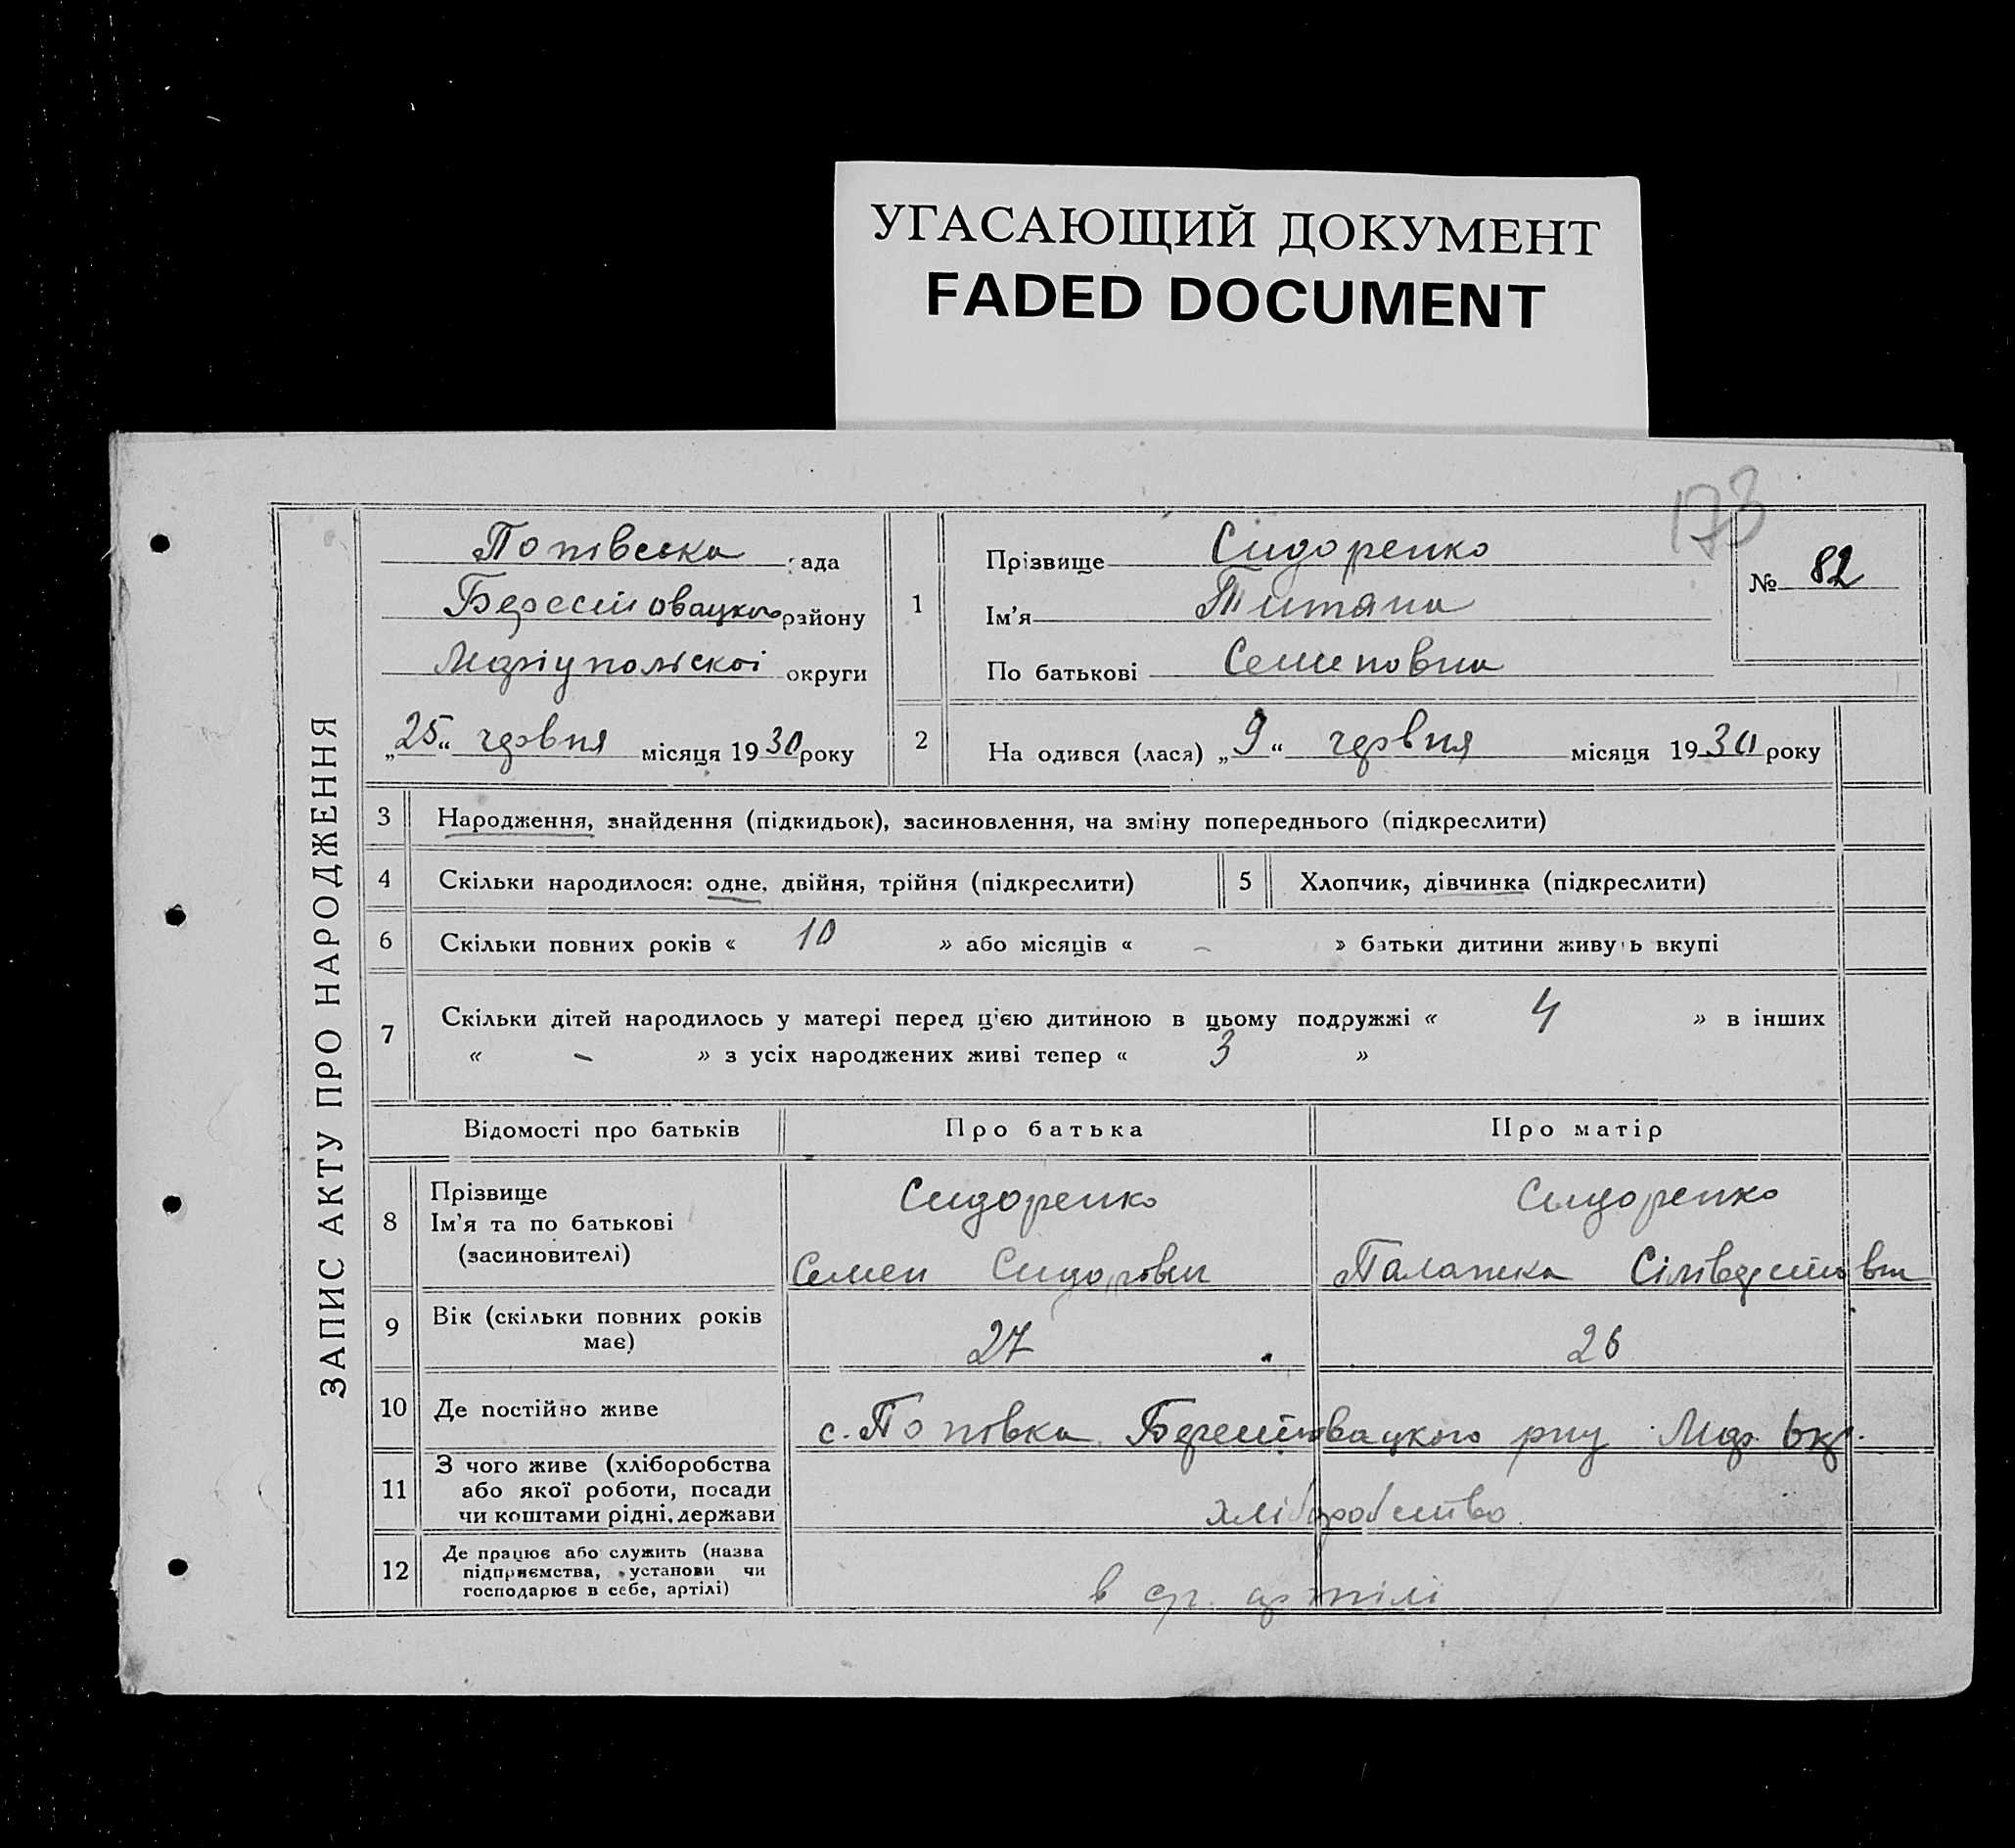 УГАСАЮЩИЙ ДОКУМЕНТ
FADED DOCUMENT
173
ЗАПИС АКТУ ПРО НАРОДЖЕННЯ
Попівська рада
Берестовацького району
Маріупольскої округи
„25“ червня місяця 1930 року
1
Прізвище Сидоренко
Ім'я Титяна
По батькові Семеновна
№ 82
2 На одився (лася) „9“ червня місяця 1930 року
3 Народження, знайдення (підкидьок), засиновлення, на зміну попереднього (підкреслити)
4 Скільки народилося: одне, двійня, трійня (підкреслити) 5 Хлопчик, дівчинка (підкреслити)
6 Скільки повних років « 10 » або місяців « – » батьки дитини живуть вкупі
7 Скільки дітей народилось у матері перед цією дитиною в цьому подружжі « 4 » в інших
« – » з усіх народжених живі тепер « 3 »
Відомості про батьків Про батька Про матір
8 Прізвище
Ім'я та по батькові
(засиновителі)
Сидоренко
Семен
Сидоренко
Палажка
9 Вік (скільки повних років
має)
27 26
10 Де постійно живе с. Попівка Берестовацкого рну Мар. окр.
11 З чого живе (хліборобства
або якої роботи, посади
чи коштами рідні, держави
хліборобство
12 Де працює або служить (назва
підприємства, установи чи
господарює в себе, артілі)
в артілі